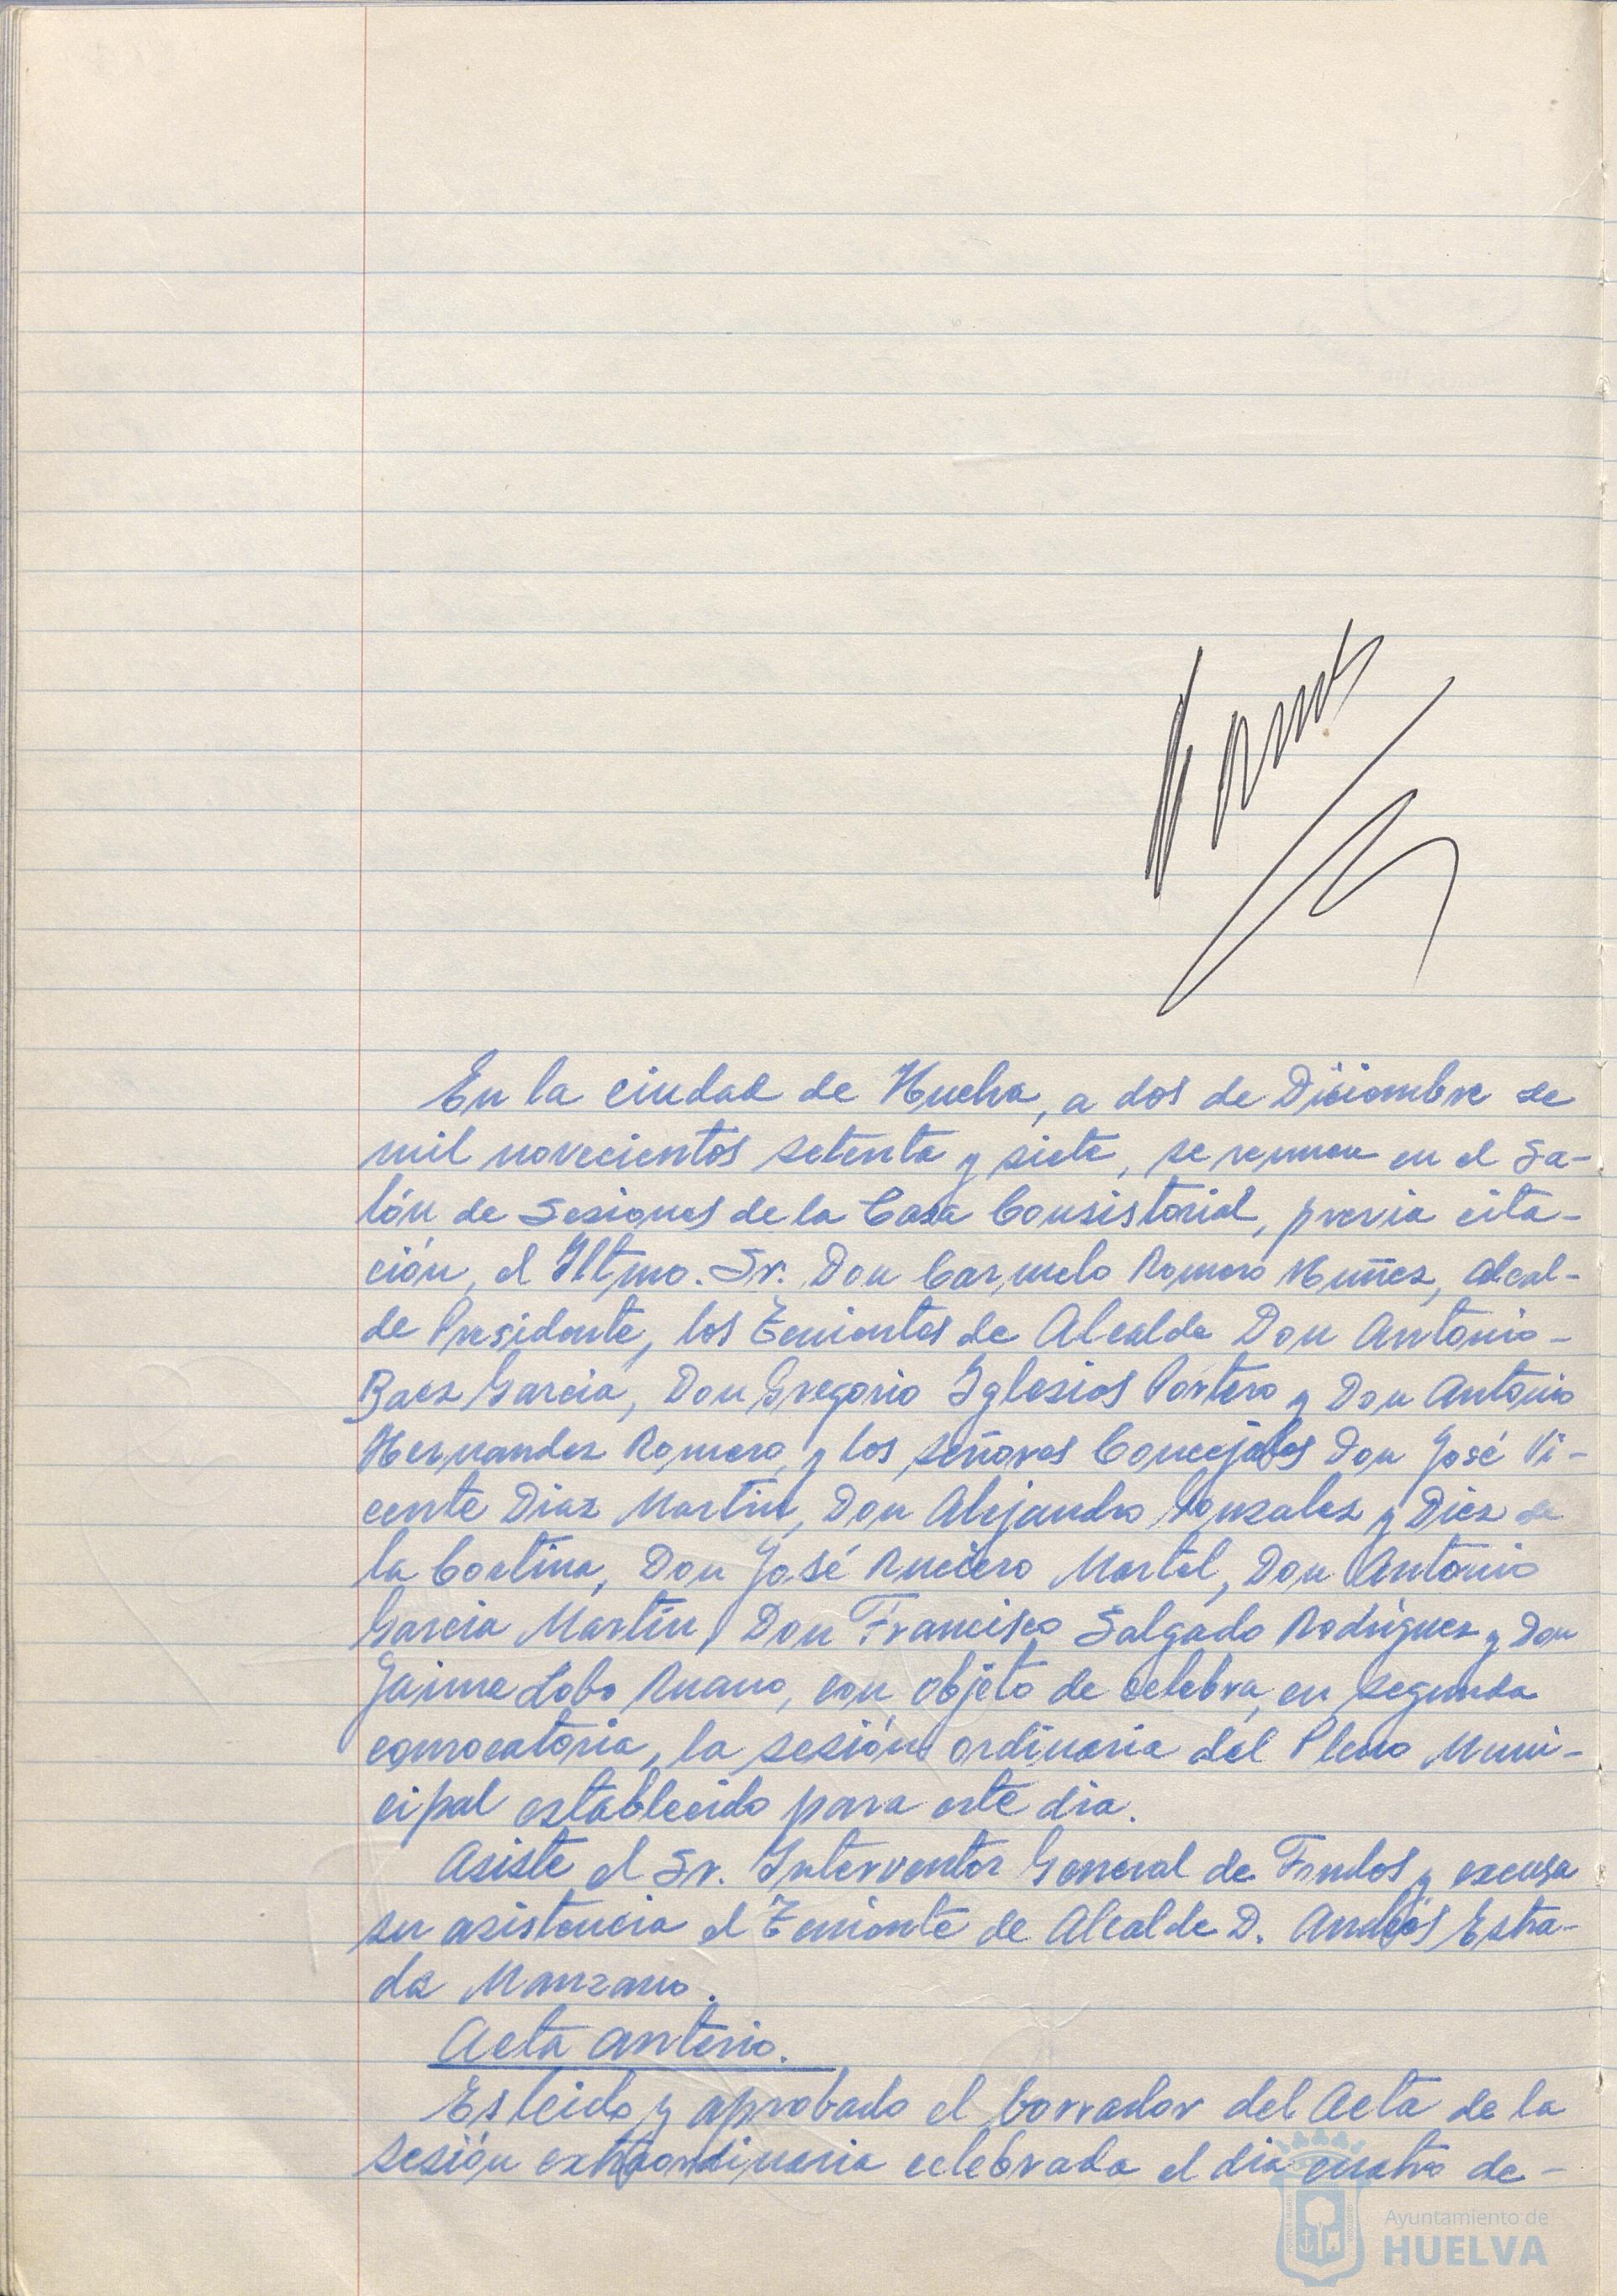 En la ciudad de Huelva, a dos de Diciembre de
mil novecientos setenta y siete, se reunen en el Sa-
lón de Sesiones de la Casa Consistorial, previa cita-
ción, el Iltmo. Sr. Don Carmelo Romero Nuñez, Alcal-
de Presidente, los Tenientes de Alcalde Don Antonio-
Baez Garcia, Don Gregorio Iglesias Portero y Don Antonio
Hernandez Romero, y los señores Concejales Don José Vi-
cente Diaz Martin, Don Alejandro Gonzalez y Diez de
la Cortina, Don José Ruciero Martel, Don Antonio
Garcia Martín, Don Francisco Salgado Rodriguez y Don
Jaime Lobo Ruano, con objeto de celebra, en segunda
convocatoria, la sesión ordinaria del Pleno Muni-
cipal establecido para este dia.
Asiste el Sr. Interventor General de Fondos y excusa
su asistencia el Teniente de Alcalde D. Andrés Estra-
da Manzano.
Acta anterio.
Es leido y aprobado el borrador del Acta de la
sesión extraordinaria celebrada el dia cuatro de-
Ayuntamiento de
HUELVA